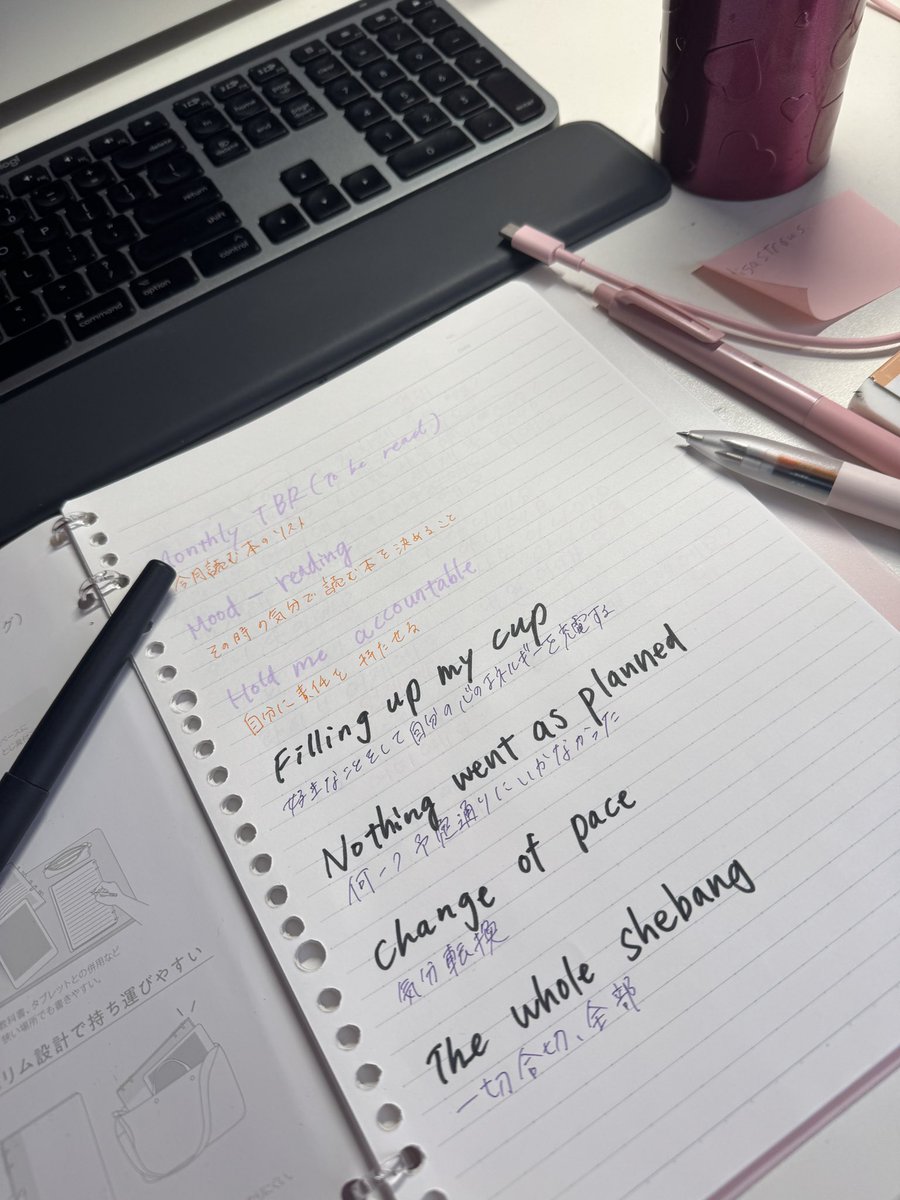 logi
delete
return
shift
control
option
command
home
end
page up
page down
enter
7
8
9
4
5
6
1
2
3
0
Monthly TBR (To be read)
今月読む本のリスト
Mood-reading
その時の気分で読む本を決めること
Hold me accountable
自分に責任を持たせる
Filling up my cup
好きなことをして自分の心のエネルギーを充電する
Nothing went as planned
何一つ予定通りにいかなかった
Change of pace
気分転換
The whole shebang
一切合切、全部
教科書、タブレットとの併用など
狭い場所でも書きやすい。
リム設計で持ち運びやすい